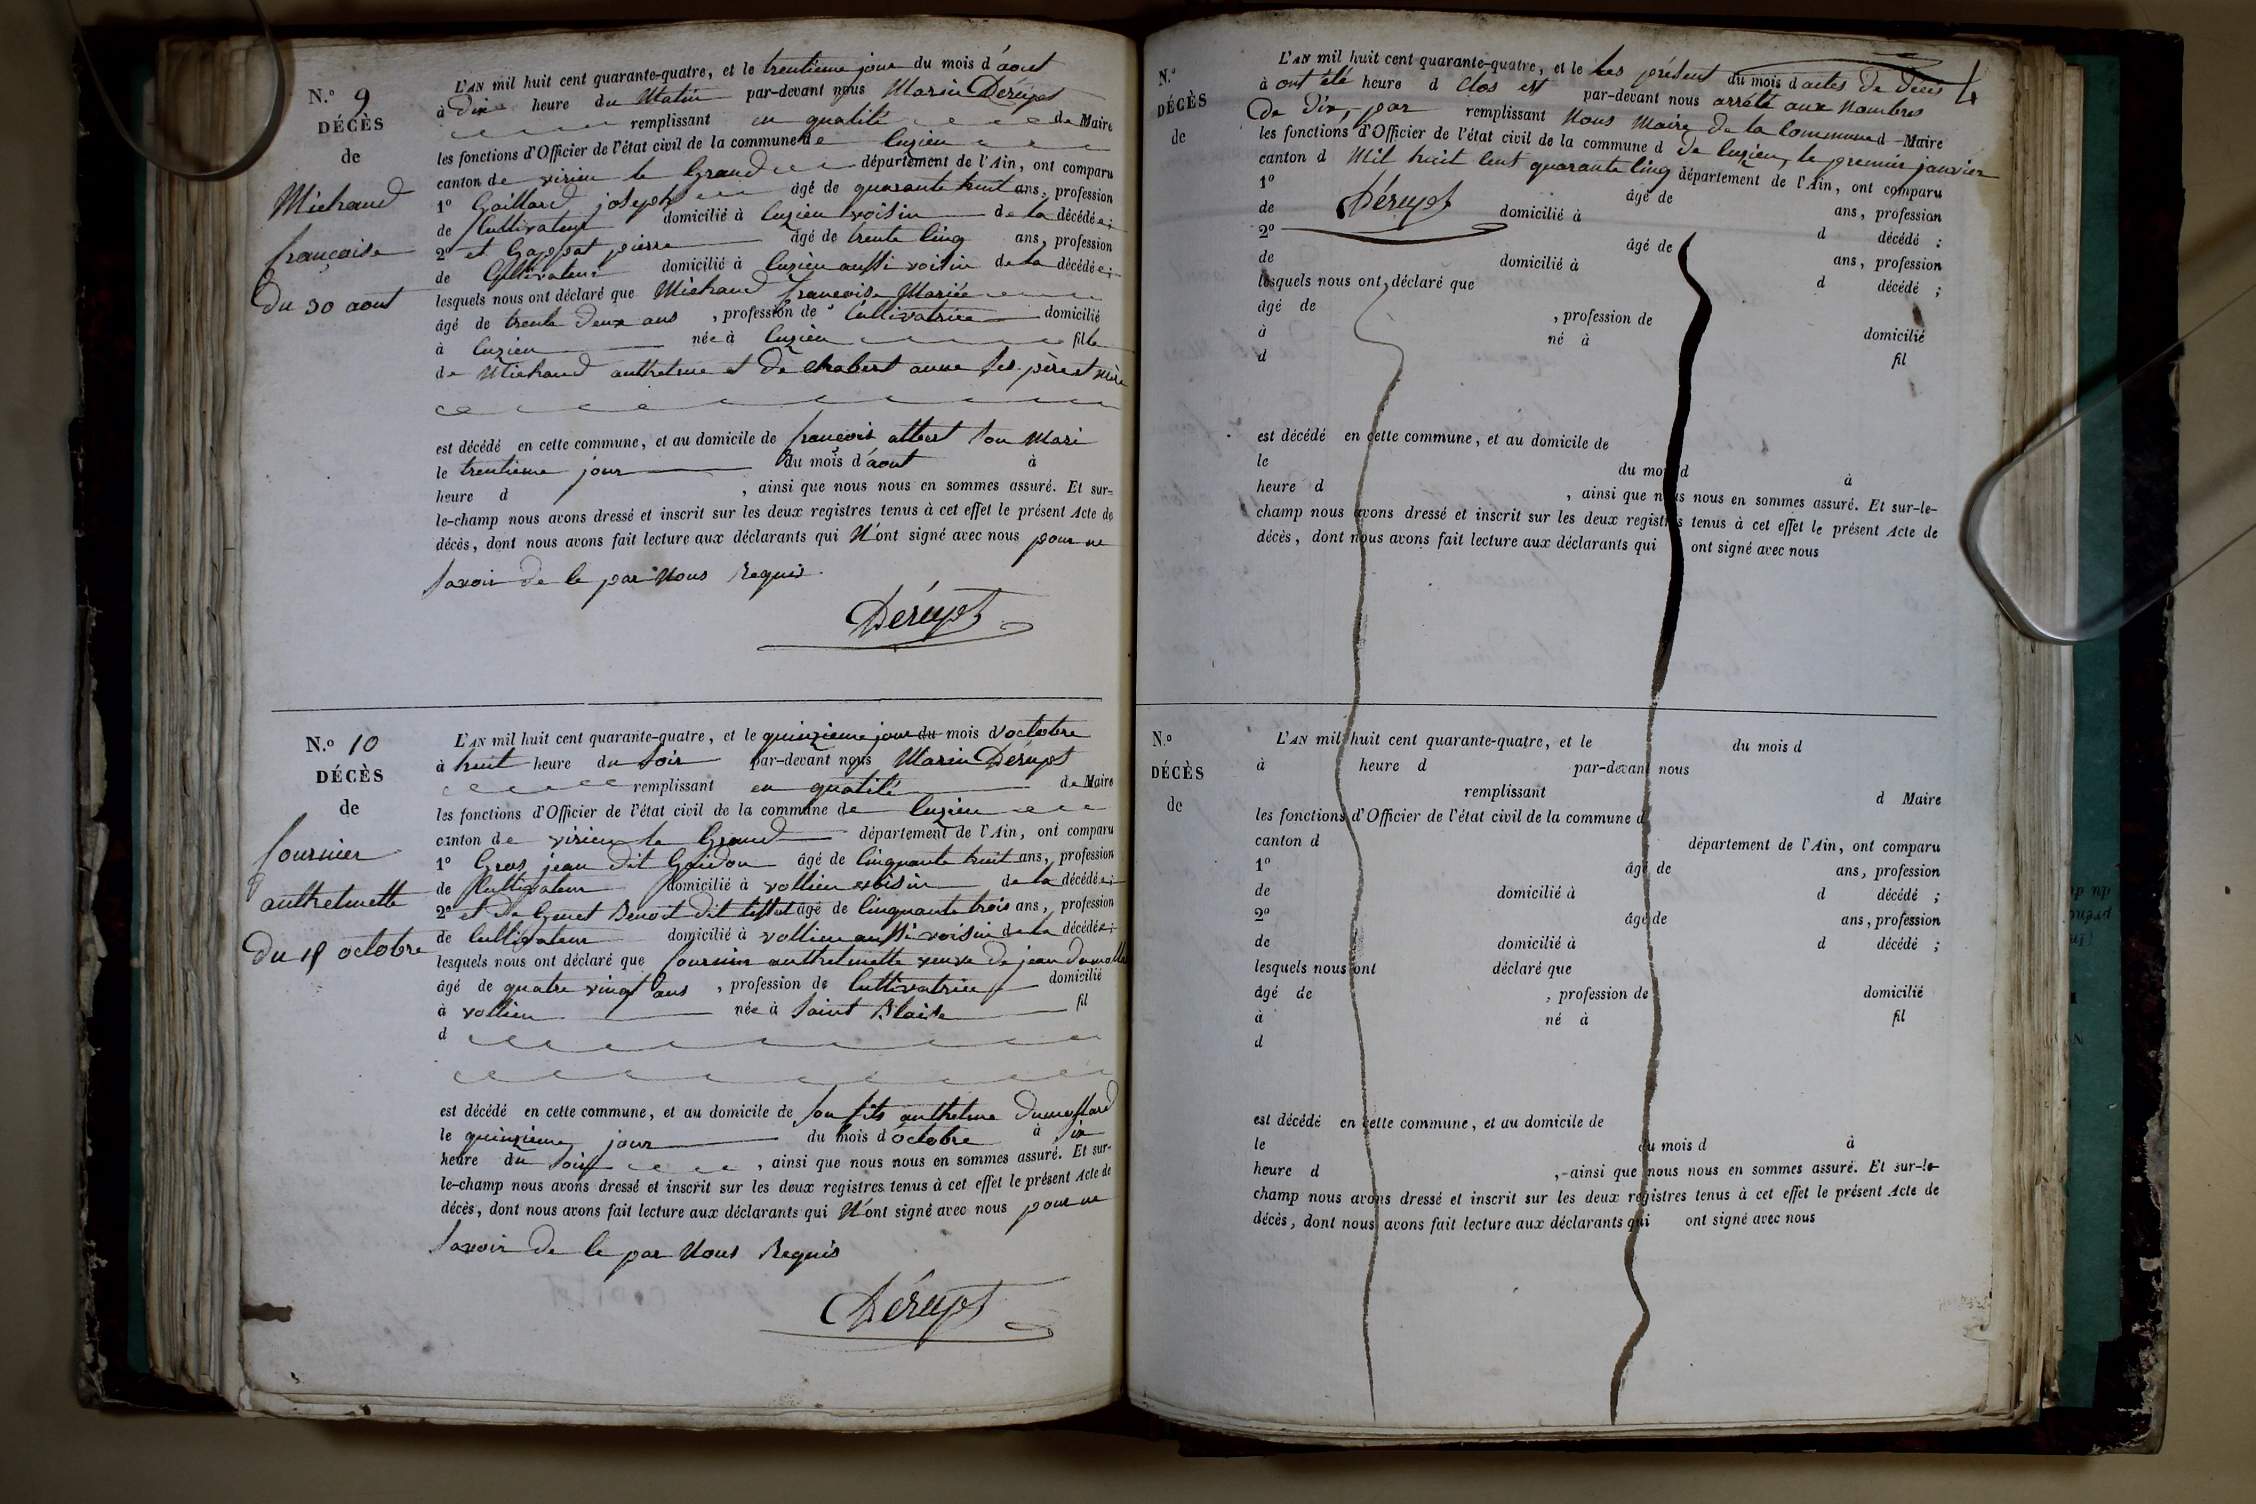 N.° 9
DÉCÈS
de
Michaud
françoise
Du 30 aout
L'AN mil huit cent quarante-quatre, et le trentieme jour du mois d'aout
à Dix heure du Matin par-devant nous Marin Dérupt
remplissant en qualité de Maire
les fonctions d'Officier de l'état civil de la commune de Cuzieu
canton de virieu le Grand département de l'Ain, ont comparu
1° Gaillard joseph âgé de quarante huit ans, profession
de Cultivateur domicilié à Cuzieu voisin de la décédée;
2° et Gappat pierre âgé de trente Cinq ans, profession
de Cultivateur domicilié à Cuzieu aussi voisin de la décédée;
lesquels nous ont déclaré que Michaud françoise Mariée
âgé de trente Deux ans, profession de Cultivatrice domicilié
à Cuzieu née à Cuzieu fille
de Michaud anthelme et De Chabert anne Ses père et mère
est décédé en cette commune, et au domicile de françois albert Son Mari
le trentieme jour du mois d'aout à
heure d , ainsi que nous nous en sommes assuré. Et sur-
le-champ nous avons dressé et inscrit sur les deux registres tenus à cet effet le présent Acte de
décès, dont nous avons fait lecture aux déclarants qui N'ont signé avec nous pour ne
Savoir De le par Nous Requis.
Dérupt
N.° 10
DÉCÈS
de
fournier
anthelmette
Du 15 octobre
L'AN mil huit cent quarante-quatre, et le quinzieme jour du mois d'octobre
à huit heure du Soir par-devant nous Marin Dérupt
remplissant en qualité de Maire
les fonctions d'Officier de l'état civil de la commune de Cuzieu
canton de virieu le Grand département de l'Ain, ont comparu
1° Gros jean dit Goidon âgé de Cinquante huit ans, profession
de Cultivateur domicilié à vollien voisin de la décédée;
2° et De Genet Benoit dit âgé de Cinquante trois ans, profession
de Cultivateur domicilié à vollien aussi voisin de la décédée;
lesquels nous ont déclaré que fournier anthelmette veuve De jean Dumollard
âgé de quatre vingt ans, profession de Cultivatrice domicilié
à vollien née à Saint Blaise fil
d
est décédé en cette commune, et au domicile de Son fils anthelme Dumollard
le quinzieme jour du mois d'octobre à Six
heure du Soir, ainsi que nous nous en sommes assuré. Et sur-
le-champ nous avons dressé et inscrit sur les deux registres tenus à cet effet le présent Acte de
décès, dont nous avons fait lecture aux déclarants qui N'ont signé avec nous pour ne
Savoir De le par Nous Requis
Dérupt
4
N.°
DÉCÈS
de
L'AN mil huit cent quarante-quatre, et le Les présent du mois d actes De Décès
à ont été heure d Clos et par-devant nous arrêté aux Nombres
De Dix, par remplissant Nous Maire De la Commune d Maire
les fonctions d'Officier de l'état civil de la commune d De Cuzieu, le premier janvier
canton d Mil huit Cent quarante Cinq département de l'Ain, ont comparu
1° âgé de ans, profession
de Dérupt domicilié à d décédé ;
2° âgé de ans, profession
de domicilié à d décédé ;
lesquels nous ont déclaré que
âgé de , profession de domicilié
à né à fil
d
est décédé en cette commune, et au domicile de
le du mois d à
heure d , ainsi que nous nous en sommes assuré. Et sur-le-
champ nous avons dressé et inscrit sur les deux registres tenus à cet effet le présent Acte de
décès, dont nous avons fait lecture aux déclarants qui ont signé avec nous
N.°
DÉCÈS
de
L'AN mil huit cent quarante-quatre, et le du mois d
à heure d par-devant nous
remplissant d Maire
les fonctions d'Officier de l'état civil de la commune d
canton d département de l'Ain, ont comparu
1° âgé de ans, profession
de domicilié à d décédé ;
2° âgé de ans, profession
de domicilié à d décédé ;
lesquels nous ont déclaré que
âgé de , profession de domicilié
à né à fil
d
est décédé en cette commune, et au domicile de
le du mois d à
heure d , ainsi que nous nous en sommes assuré. Et sur-le-
champ nous avons dressé et inscrit sur les deux registres tenus à cet effet le présent Acte de
décès, dont nous avons fait lecture aux déclarants qui ont signé avec nous